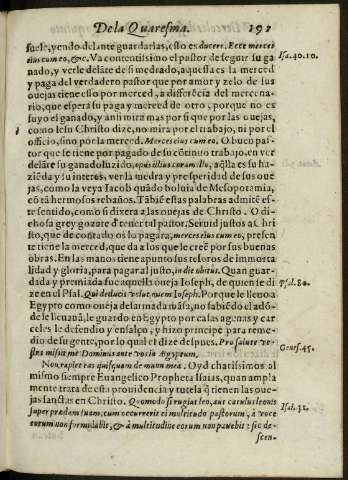 De la Quaresma. 192
suele, yendo delante guardarlas, esto es ducere. Ecce merces
eius cum eo, &c. Va contentissimo el pastor de seguir su ga
nado, y verle delãte de si medrado, aquessa es la merced
y paga del verdadero pastor que por amor y zelo de sus
ouejas tiene esso por merced, a differẽcia del mercena-
rio, que espera su paga y merced de otro, porque no es
suyo el ganado, y assi mira mas por si que por las ouejas,
como Iesu Christo dize, no mira por el trabajo, ni por el
officio, sino por la merced. Merces eius cum eo. O buen pas-
tor que se tiene por pagado de su cõtinuo trabajo, en ver
delãte su ganado luzido, opus illius coram illo, aq̃lla es su ha-
ziẽda y su interes, ver la medra y prosperidad de sus oue
jas, como la veya Iacob quãdo boluia de Mesopotamia,
cõ tã hermosos rebaños. Tãbiẽ estas palabras admitẽ es-
te sentido, como si dixera a las ouejas de Christo. O di-
chosa grey gozate d̃ tener tal pastor. Seruid justos a Chri
sto, que de contado os lo pagara, merces eius cum eo, presen
te tiene la merced, que da a los que le creẽ por sus buenas
obras. En las manos tiene a punto sus tesoros de immorta
lidad y gloria, para pagar al justo, in die obitus. Quan guar-
dada y premiada fue aquella oueja Ioseph, de quien se di
ze en el Psal. Qui deducis velut ouem Ioseph. Porque le lleuo a
Egypto como oueja desarmada mãsa, no sabiẽdo el adõ-
de le lleuauã, le guardo en Egypto por casas agenas y car
celes le defendio y ensalço, y hizo principe para reme-
dio de su gente, por lo qual el dize despues. Pro salute ve-
stra misit me Dominus ante vos in Ægyptum.
Non rapiet eas quisquam de manu mea. Oyd charissimos al
mismo siempre Euangelico Propheta Isaias, quan ampla
mente trata desta prouidencia y tutela q̃ tienen las oue-
jas sanctas en Christo. Quomodo si rugiat leo, aut catulus leonis
super prædam suam, cum occurrerit ei multitudo pastorum, a voce
eorum non formidabit, & à multitudine eorum non pauebit: sic de-
scen-
Isa. 40. 10.
Psal. 80.
Genes. 45.
Isai. 31.